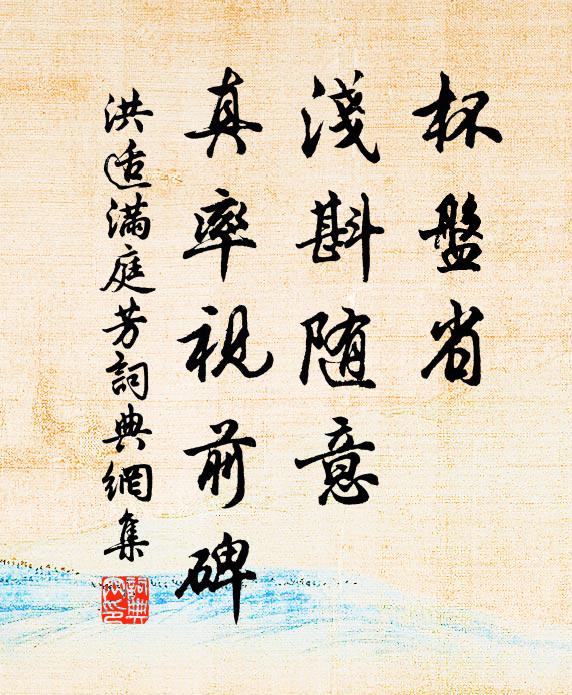 杯盤省
淺斟随意
真率視前碑
洪适滿庭芳詞典網集